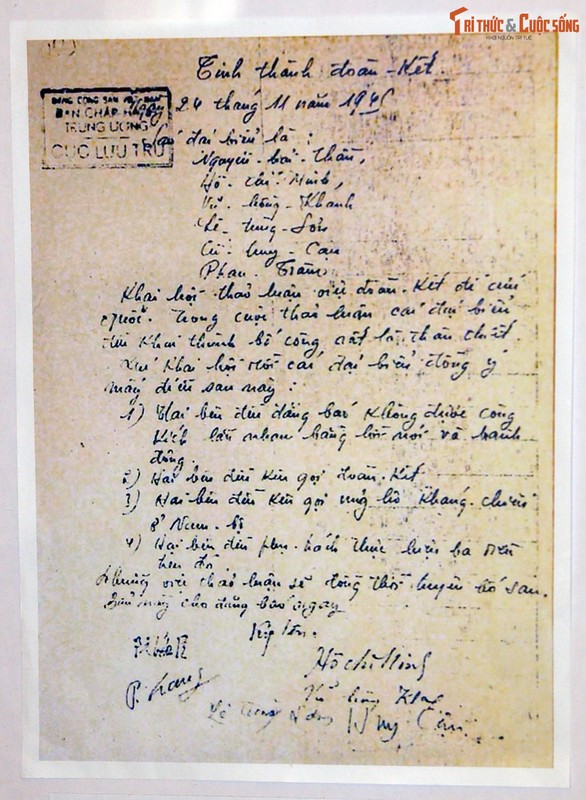 TRI THỨC & CUỘC SỐNG
Tinh thành đoàn-Kết
ĐẢNG CỘNG SẢN VIỆT NAM
BAN CHẤP HÀNH
TRUNG ƯƠNG
CỤC LƯU TRỮ
Ngày 24 tháng 11 năm 1945
đại biểu là :
Nguyễn-hải-Thần,
Hồ-chí-Minh,
Vũ-hồng-Khanh
Lê-tùng-Sơn
Cù-huy-Cận
Phan-Trâm
Khai hội thảo luận việc đoàn-Kết để cứu
quốc. Trong cuộc thảo luận các đại biểu
đều khai thành bố công rất là thân thiết.
Khai hội rồi các đại biểu đồng ý
mấy điều sau này :
1) Hai bên đều đăng báo Không được công
Kích lẫn nhau bằng lời nói và hành
động.
2) Hai bên đều Kêu gọi đoàn-Kết
3) Hai bên đều Kêu gọi ủng hộ Kháng chiến
ở Nam-bộ
4) Hai bên đều thực hiện ba điều
trên đó
Những việc thảo luận sẽ đồng thời tuyên bố sau.
cho đăng báo ngay
Ký tên.
Hồ chí Minh
Vũ hồng Khanh
Lê Tùng Sơn
Huy Cận